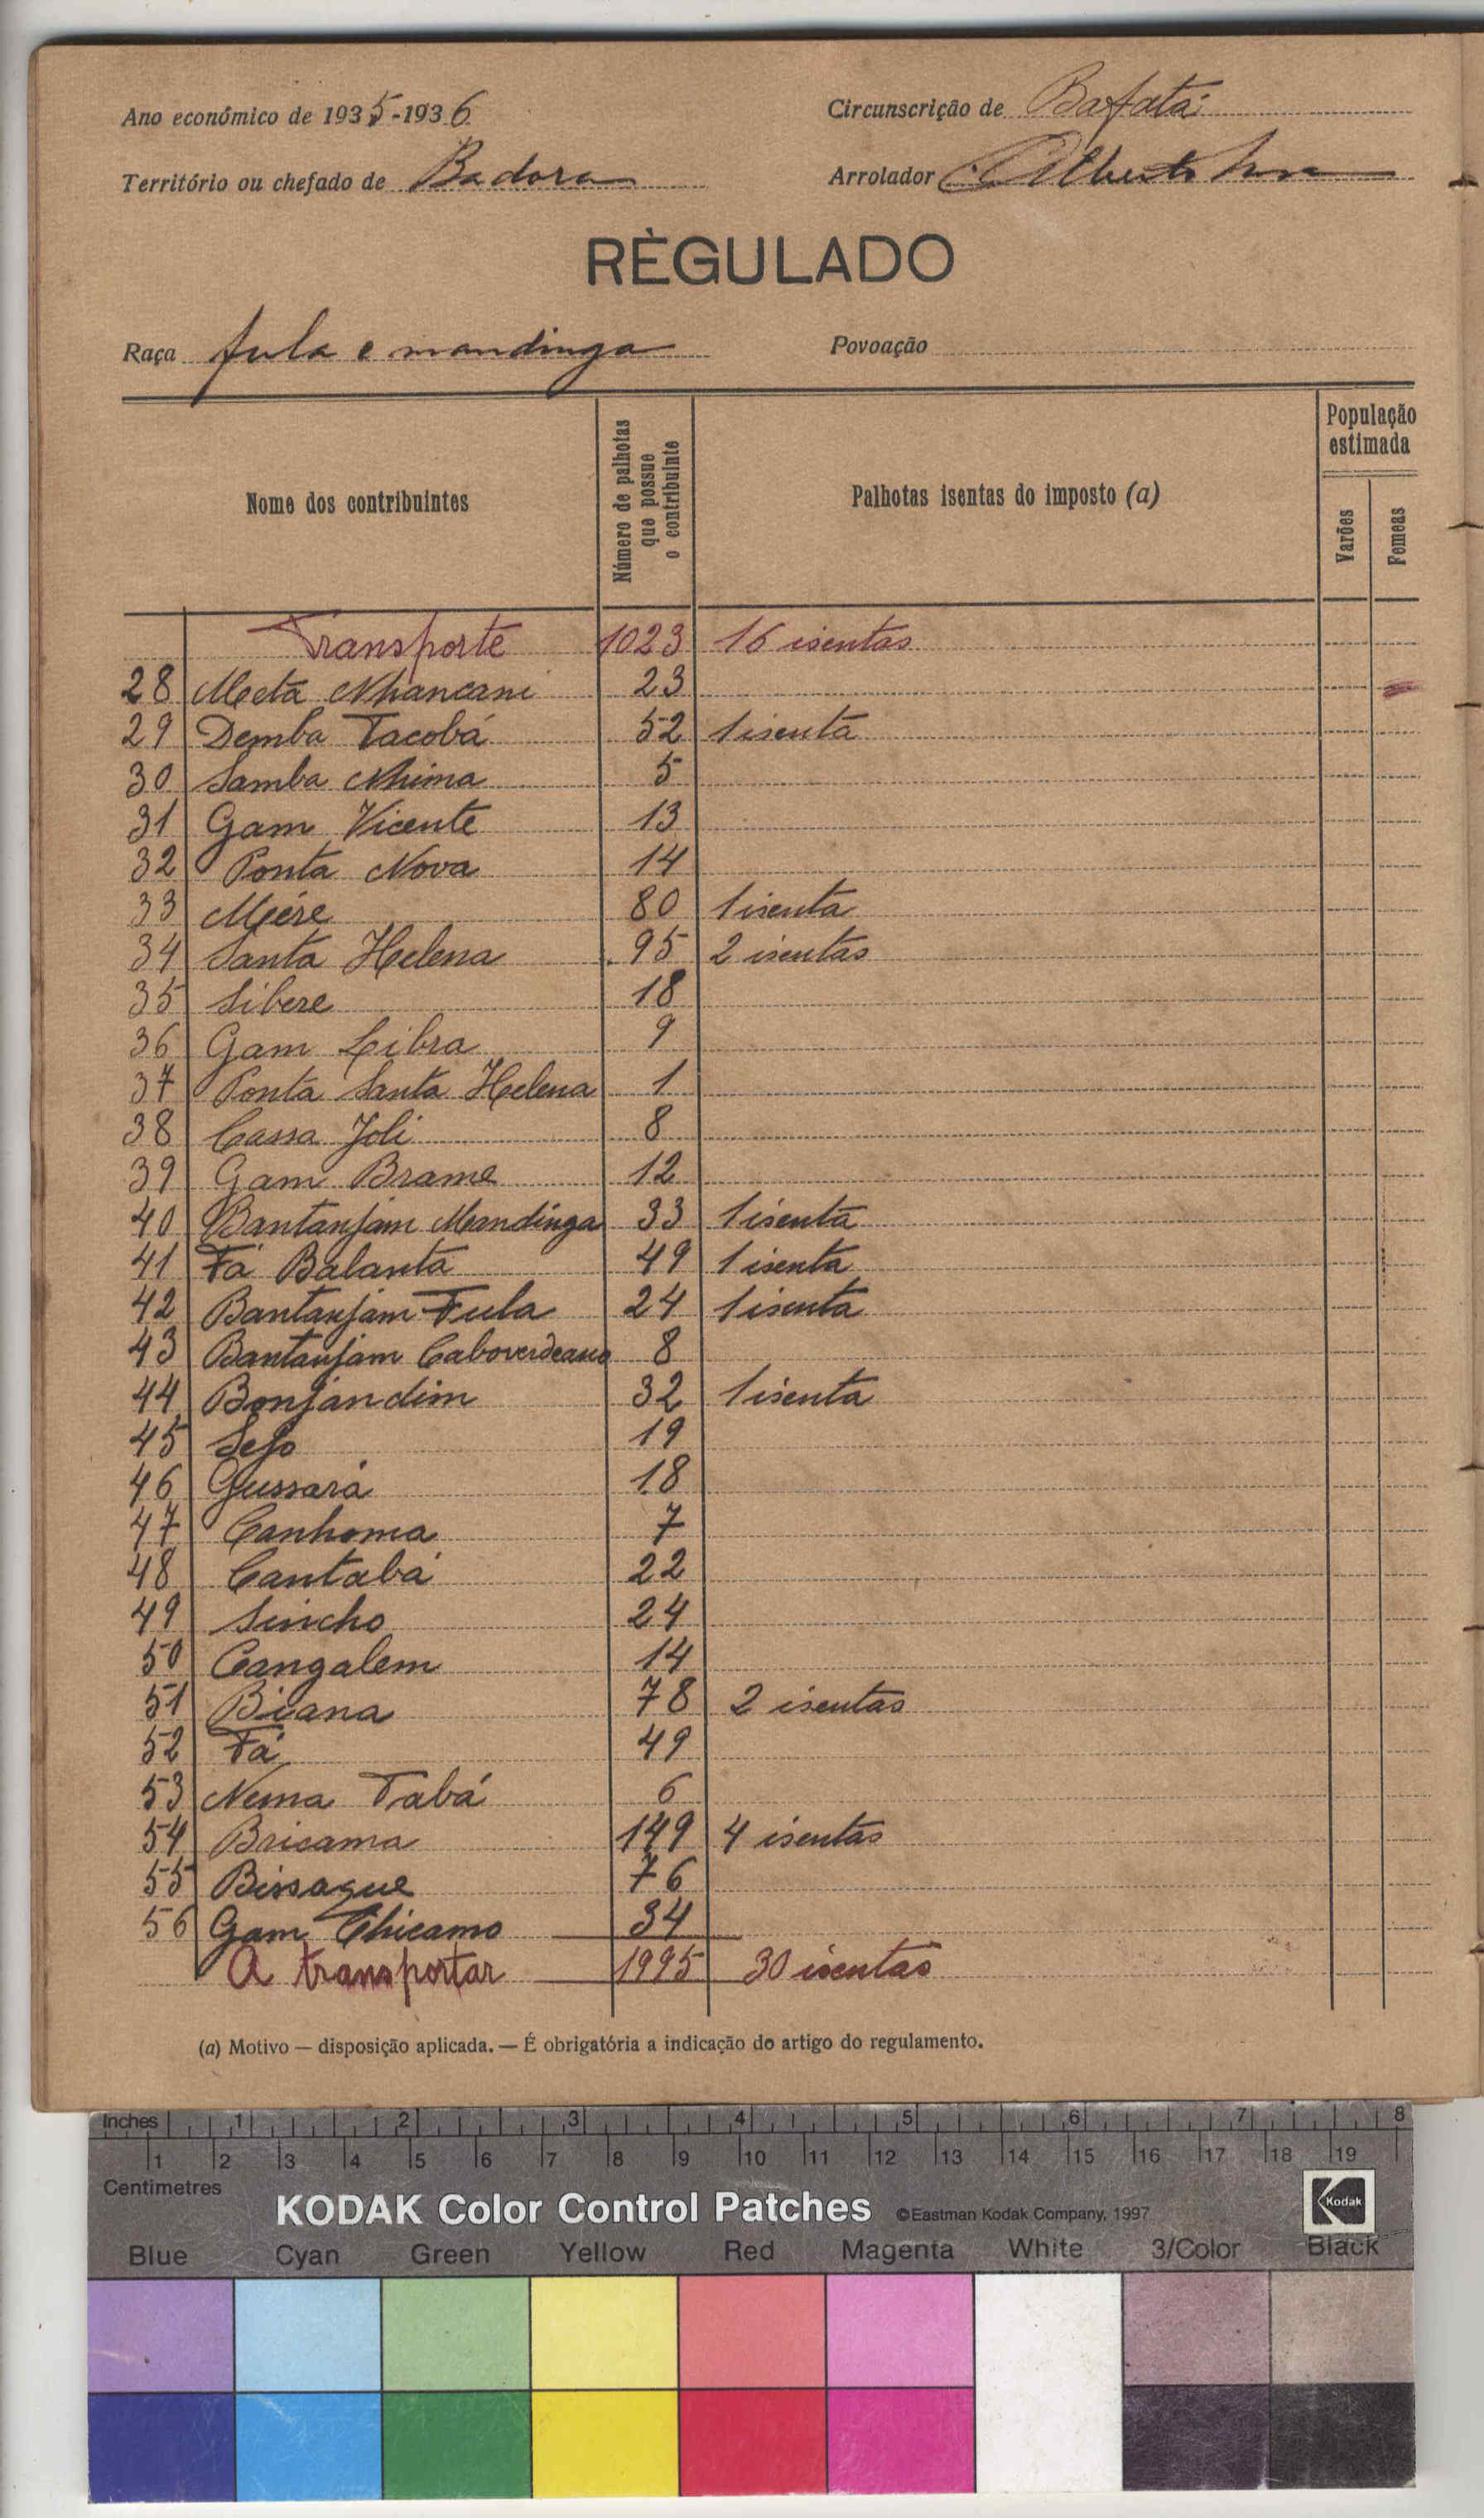 Ano económico de 1935-1936 Circunscrição de Bafatá
Território ou chefado de Badora Arrolador Alberto
RÈGULADO
Raça fula e mandinga Povoação
Nome dos contribuintes
Número de palhotas que possue o contribuinte
Palhotas isentas do imposto (a)
População estimada
Varões Femeas
Transporte 1023 16 isentas
28 Meta Nhancani 23
29 Demba Tacobá 52 1 isenta
30 Samba Nhima 5
31 Gam Vicente 13
32 Ponta Nova 14
33 Mére 80 1 isenta
34 Santa Helena 95 2 isentas
35 Sibere 18
36 Gam Libra 9
37 Ponta Santa Helena 1
38 Cassa Joli 8
39 Gam Brame 12
40 Bantanjam Mandinga 33 1 isenta
41 Fá Balanta 49 1 isenta
42 Bantanjam Fula 24 1 isenta
43 Bantanjam Caboverdeano 8
44 Bonjandim 32 1 isenta
45 Sefo 19
46 Gussará 18
47 Canhoma 7
48 Cantabá 22
49 Sincho 24
50 Cangalem 14
51 Biana 78 2 isentas
52 Fá 49
53 Nema Tabá 6
54 Bricama 149 4 isentas
55 Bissaque 76
56 Gam Chicamo 34
A transportar 1995 30 isentas
(a) Motivo — disposição aplicada. — É obrigatória a indicação do artigo do regulamento.
Inches 1 2 3 4 5 6 7 8
1 2 3 4 5 6 7 8 9 10 11 12 13 14 15 16 17 18 19
Centimetres
KODAK Color Control Patches ©Eastman Kodak Company, 1997 Kodak
Blue Cyan Green Yellow Red Magenta White 3/Color Black